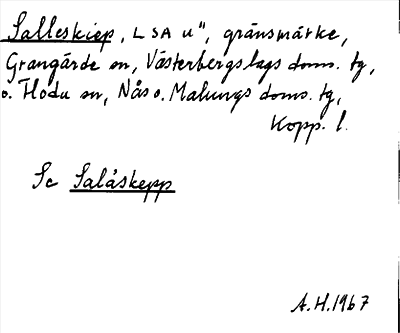 Salleskiep, LSA u", gränsmärke,
Grangärde sn, Västerbergslags doms. tg,
o. Floda sn, Nås o. Malungs doms. tg,
Kopp. l.
Se Salåskepp
A.H.1967